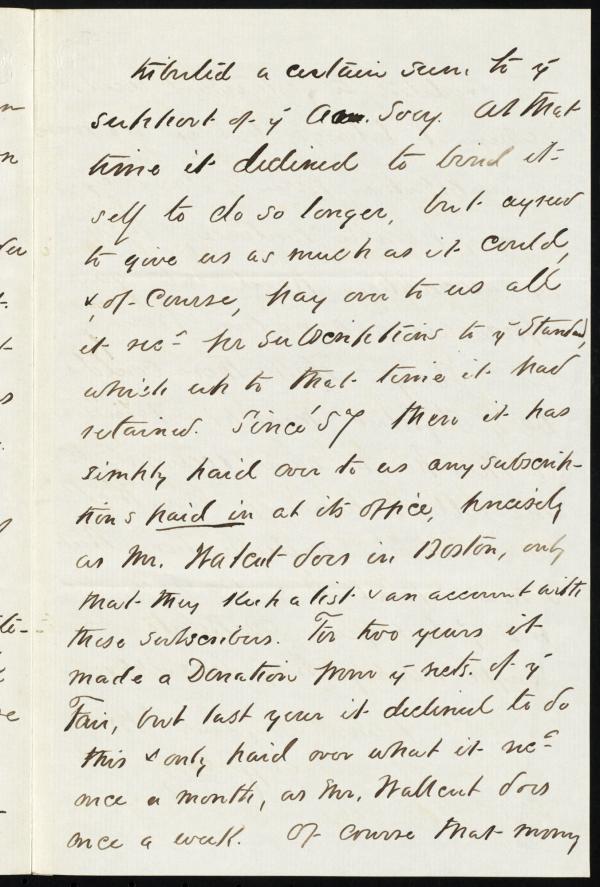 tributed a certain sum to ye
support of ye Am. Socy. At that
time it declined to bind it-
self to do so longer, but agreed
to give us as much as it could,
&, of course, pay over to us all
it recd for subscriptions to ye Standard,
which up to that time it had
retained. Since '57 there it has
simply paid over to us any subscrip-
tions paid in at its office, precisely
as Mr. Walcut does in Boston, only
that they keep a list & an account with
these subscribers. For two years it
made a Donation from ye rects. of ye
Fair, but last year it declined to do
this & only paid over what it recd
once a month, as Mr. Wallcut does
once a week. Of course that money